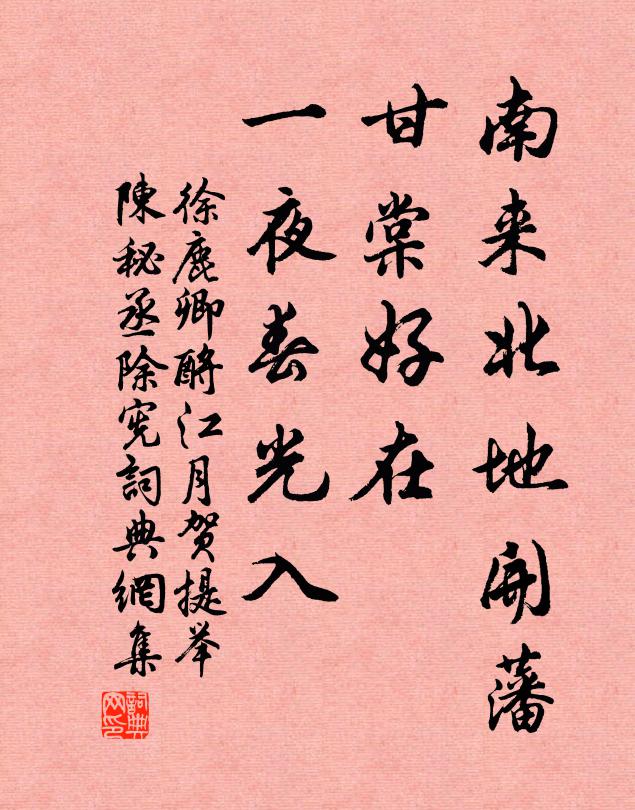 南来北地開藩
甘棠好在
一夜春光入
徐鹿卿酹江月贺提举
陳秘丞除宪詞典網集
詞典网印